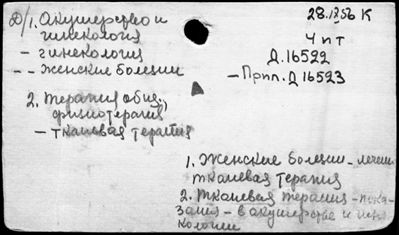 Д/1. Акушерство и
гинекология
- гинекология
-- Женские болезни
2. Терапия общ.,
физиотерапия
- тканевая терапия
28.1356 К
4 пт
Д.16522
- Прил. Д 16523
1. Женские болезни - лечение
тканевая терапия
2. Тканевая терапия - пока-
зания - в акушерстве и гине-
кологии